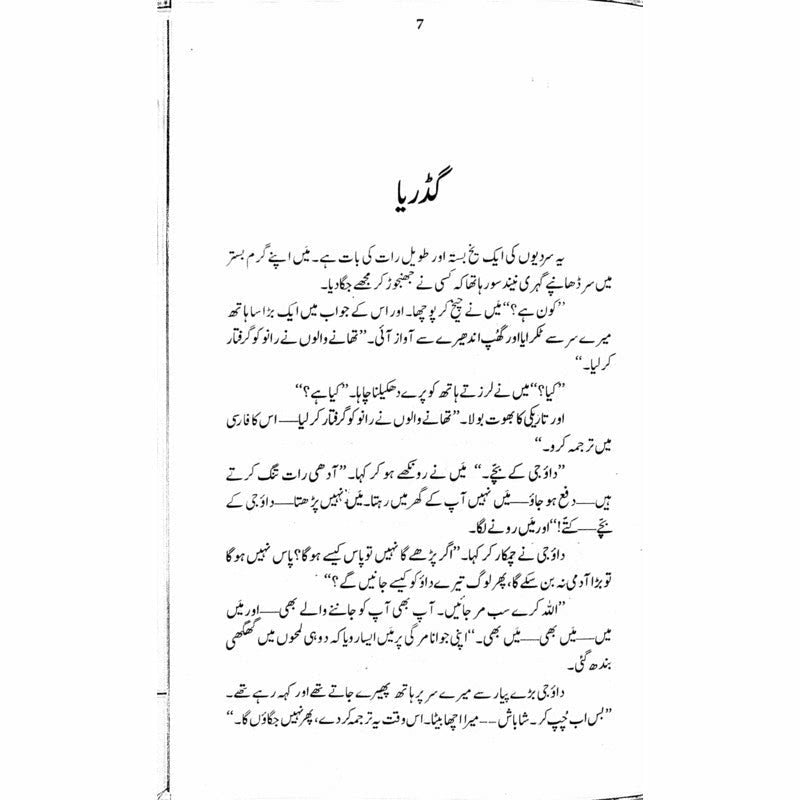 7
گڈریا
یہ سردیوں کی ایک یخ بستہ اور طویل رات کی بات ہے۔ میں اپنے گرم بستر
میں سر ڈھانپے گہری نیند سو رہا تھا کہ کسی نے جھنجوڑ کر مجھے جگا دیا۔
”کون ہے؟“ میں نے چیخ کر پوچھا۔ اور اس کے جواب میں ایک بڑا سا ہاتھ
میرے سر سے ٹکرایا اور گھپ اندھیرے سے آواز آئی۔ ”تھانے والوں نے رانو کو گرفتار
کر لیا۔“
”کیا؟“ میں نے لرزتے ہاتھ کو پرے دھکیلنا چاہا۔ ”کیا ہے؟“
اور تاریکی کا بھوت بولا۔ ”تھانے والوں نے رانو کو گرفتار کر لیا — اس کا فارسی
میں ترجمہ کرو۔“
”داؤ جی کے بچے۔“ میں نے رونکھے ہو کر کہا۔ ”آدھی رات تنگ کرتے
ہیں — دفع ہو جاؤ — میں نہیں آپ کے گھر میں رہتا۔ میں نہیں پڑھتا — داؤ جی کے
بچے — کتے!“ اور میں رونے لگا۔
داؤ جی نے چمکار کر کہا۔ ”اگر پڑھے گا نہیں تو پاس کیسے ہو گا؟ پاس نہیں ہو گا
تو بڑا آدمی نہ بن سکے گا، پھر لوگ تیرے داؤ کو کیسے جانیں گے؟“
”اللہ کرے سب مر جائیں۔ آپ بھی آپ کو جاننے والے بھی — اور میں
میں — میں بھی — میں بھی۔“ اپنی جوانا مرگی پر میں ایسا رویا کہ دو ہی لمحوں میں گھگھی
بندھ گئی۔
داؤ جی بڑے پیار سے میرے سر پر ہاتھ پھیرے جاتے تھے اور کہہ رہے تھے۔
”بس اب چُپ کر۔ شاباش -- میرا اچھا بیٹا۔ اس وقت یہ ترجمہ کر دے، پھر نہیں جگاؤں گا۔“